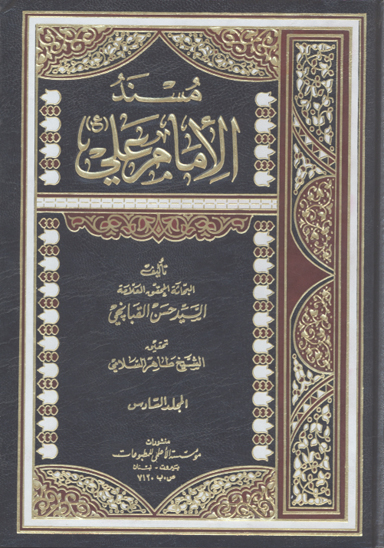 مُسْنَدُ
الإمَام عَلي (ع)
تأليف
البحاثة المحقق العلامة
السيّد حسن القبانچي
تحقيق
الشيخ طاهر السّلامي
المجلد السّادس
منشورات
مؤسسة الأعلمي للمطبوعات
بيروت - لبنان
ص.ب ٧١٢٠